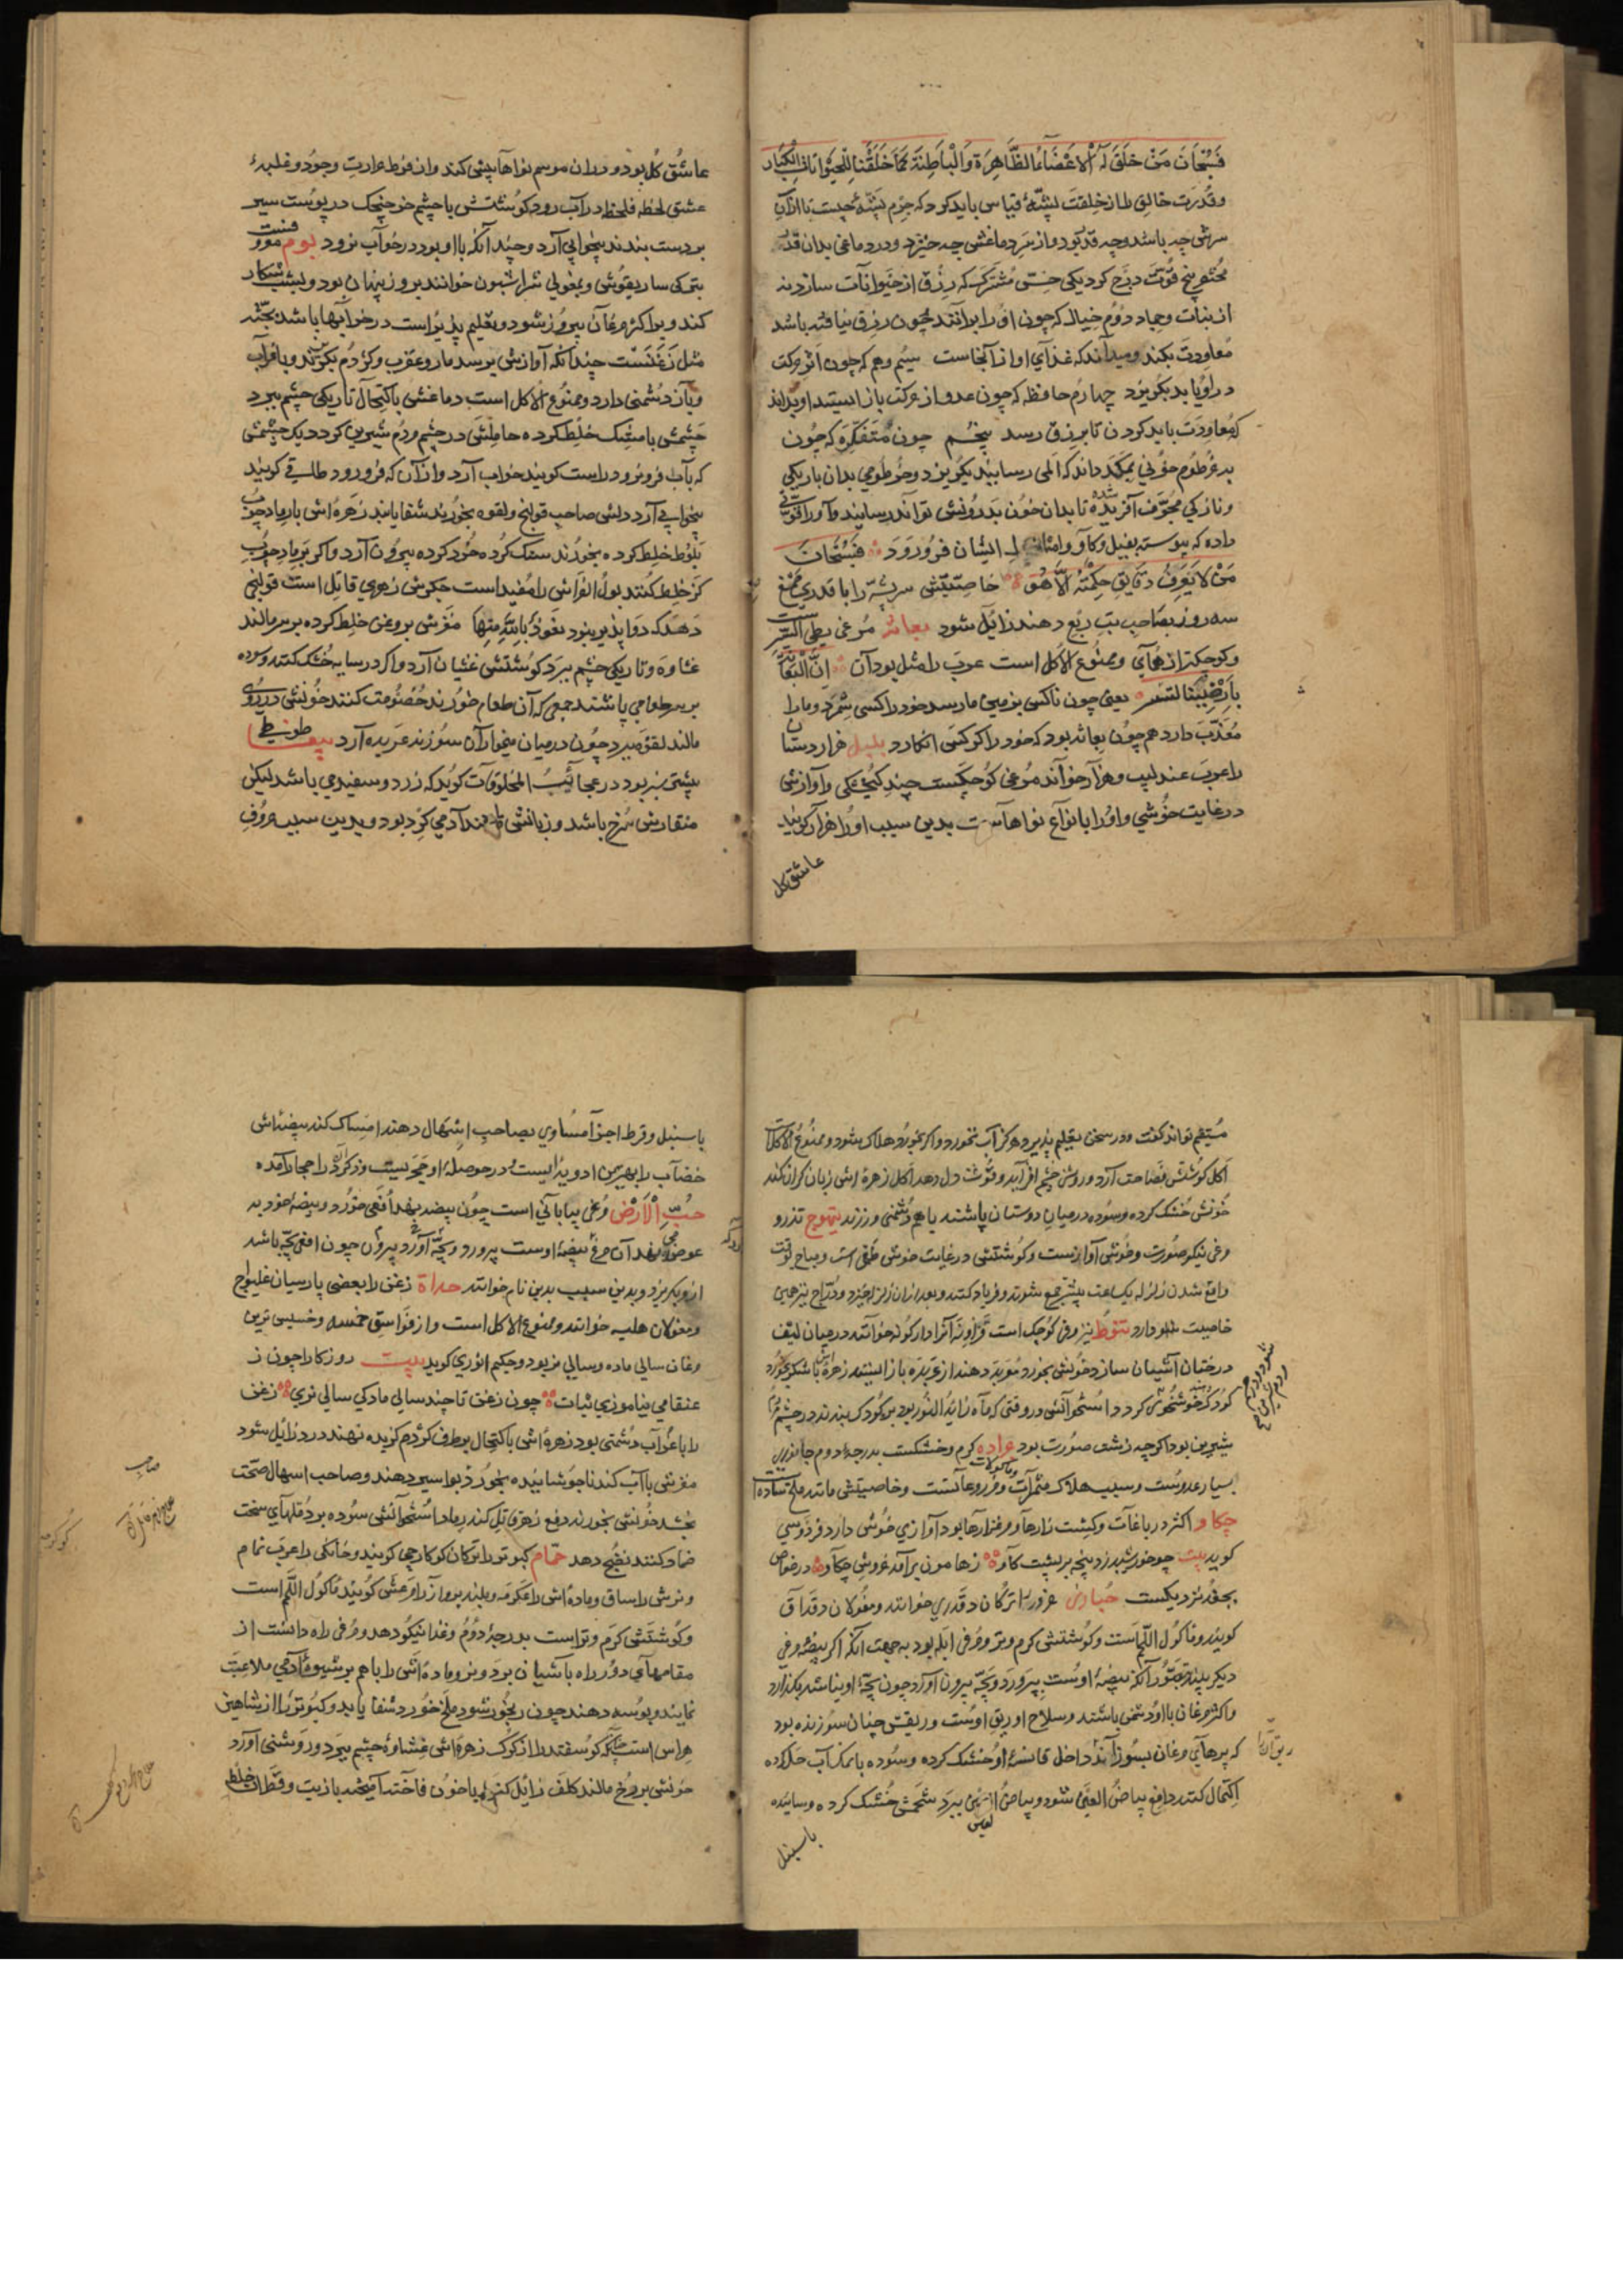 فسبحان من خلق له الاعضاء الظاهرة والباطنة كما خلقنا للحيوانات الكبار
وقدرت خالق را از خلقت پشهٔ قیاس باید کرد که جرم پشهٔ چیست تا از آن
سرش چه باشد و چه قدر بود و از سر دماغش چه خیزد و در دماغی بدان قدر
پنج قوت درج کرد یکی حس مشترک که رزق از حیوانات سازد نه
از نبات و جماد دوم خیال که چون او را برانند چون رزق نیافته باشد
معاودت بکند و میداند که غذای او از آنجاست سیم وهم که چون اثر حرکت
دریابد بگریزد چهارم حافظه که چون عدو از حرکت باز ایستد او بداند
که معاودت باید کردن تا برزق رسد پنجم چون متفکره که چون
بخرطوم خونی بمکد داند که المی رسانید بگریزد و خرطومی بدان باریکی
و نازکی مجوف آفریده شده تا بدان خون بدرونش تواند رسانید و او را قوتی
داده که پیوسته بفیل و گاو و امثال ایشان فرو رود فسبحان
من لا یعرف دقایق حکمته الا هو خاصیتش سر پشه را با قدری صمغ
سه روز بصاحب تب ربع دهند زایل شود بغاث مرغی بطی السیر است
و کوچکتر از همای و ممنوع الاکل است عرب را مثل بود آن ان البغاث
بارضنا یستنسر یعنی چون ناکسی بزمین ما رسد خود را کسی شمرد و ما را
معذب دارد همچون بغاث بود که خود را کرکس انگارد بلبل هزار دستان
را عرب عندلیب و هزار خوانند مرغی کوچکست چند گنجشکی و آوازش
در غایت خوشی و او را بانواع نواهاست بدین سبب او را هزار گویند
عاشق گل
عاشق گل بود و در ان موسم نواها بیش کند و از فرط حرارت وجود و غلبهٔ
عشق لحظه فلحظه در آب رود گوشتش با چشم خرچنگ در پوست
بر دست بندند بیخوابی آرد و چندانکه با او بود در خواب نرود بوم
بترکی ساریقوش و بمغولی شراشبون خوانند بروز پنهان بود و بشب شکار
کند و بر اکثر مرغان پیروز شود و تعلیم پذیر است در خرابها باشد بجثه
مثل زغنست چندانکه آوازش برسد مار و عقرب و کژدم بگریزند و با غراب
و باز دشمنی دارد و ممنوع الاکل است دماغش باکتحال تاریکی چشم ببرد
چشمش با مشک خلط کرده حاملش در چشم مردم شیرین گردد یک چشمش
که بآب فرو نرود راست گویند خواب آرد و از آن که فرو رود
بیخوابی آرد دلش صاحب قولنج و لقوه بخورند شفا یابند زهره اش با رماد چوب
بلوط خلط کرده بخورند سنگ گرده خرد کرده بیرون آرد و اگر برماد چوب
گز خلط کنند بول الفراش را مفید است جگرش زهری قاتل است قولنجی
دهد که دوا پذیر نبود نعوذ بالله منها مغزش بروغن خلط کرده بر سر مالند
غشاوه و تاریکی چشم ببرد گوشتش غثیان آرد و اگر در سایه خشک کنند و سوده
بر سر طعامی پاشند جمعی که آن طعام خورند خصومت کنند خونش در روی
مالند لقوه ببرد چون در میان میخوارآن سوزند عربده آرد ببغا طوطی
بیشتر سبز بود در عجائب المخلوقات گوید که زرد و سفید می باشد لیکن
منقارش سرخ باشد و زبانش مانند آدمی گرد بود و بدین سبب حروف
مستقیم تواند گفت و در سخن تعلیم پذیرد هرگز آب نخورد و اگر بخورد هلاک شود و ممنوع الاکل
اکل گوشتش فصاحت آرد و روشنی چشم افزاید و قوت دل دهد اکل زهره اش زبان گران کند
خونش خشک کرده و سوده در میان دوستان پاشند باهم دشمنی ورزند تیهوج تذرو
مرغی نیکو صورت و خوش آوازست و گوشتش در غایت خوش طعمی است و مباح بوقت
واقع شدن زلزله یکساعت پیشتر جمع شوند و فریاد کنند و بعد از آن زلزله خیزد و دراج نیز همین
خاصیت دارد تنوط نیز مرغی کوچک است
درختان آشیان سازد خونش بخورد معربد دهند از عربده باز ایستد زهره اش با شکر بخورد
کودک خوشخوی گردد استخوانش در وقتی که ماه زاید النور بود بر کودک بندند در چشم مردم
شیرین بود اگر چه زشت صورت بود جراده گرم و خشکست بدرجهٔ دوم جانوری
بسیار عدوست و سبب هلاک مثمرات و مزروعاتست و خاصیتش مانند ملخ ساده است
چکاو اکثر در باغات و کشت زارها و مرغزارها بود آوازی خوش دارد فردوسی
گوید بیت چو خورشید بر زد پنجه بر پشت گاو ز هامون برآمد خروش چکاو در خواص
بجغد نزدیکست حباری خرورا ترکان دقدری خوانند و مغولان دقداق
گویند و ماکول اللحم است و گوشتش گرم و تر و مرغی ابله بود به جهت آنکه اگر بیضهٔ مرغی
دیگر بیند تصور آنکه بیضهٔ اوست بپرورد و بچه بیرون آورد چون بچهٔ او نباشد بگذارد
و اکثر مرغان با او دشمن باشند و سلاح او ریق اوست و ریقش چنان سوزنده بود
که پرهای مرغان بسوزاند داخل قانصهٔ او خشک کرده و سوده با نمک آب حل کرده
اکتحال کنند دافع بیاض العین شود و بیاض ببرد شحمش خشک کرده و سائیده
با سنبل
با سنبل و قرط اجزا مساوی بصاحب اسهال دهند امساک کند بیضه اش
خضاب را بهترین ادویه ایست در حوصلهٔ او حجریست
حب الارض مرغی بیابانی است چون بیضه بنهد افعی خورد و بیضهٔ خود به
عوض بنهد آن مرغ بیضهٔ اوست پرورد و بچه آورد بیرون چون افعی بچه باشد
ازو بگریزد و بدین سبب بدین نام خوانند حداة زغن را بعضی پارسیان غلیواج
و مغولان هلیه خوانند و ممنوع الاکل است و از فواسق خمسه و خسیس ترین
مرغان سالی ماده و سالی نر بود و حکیم انوری گوید بیت روزگارا چون ز
عنقا می نیاموزی ثبات چون زغن تا چند سالی مادگی سالی نری زغن
را با غراب دشمنی بود زهره اش باکتحال بر طرف کژدم گزیده نهند درد زایل شود
مغزش با آب گندنا جوشانیده بخورد بواسیر دهند و صاحب اسهال صحت
بخشد خونش بخورند دفع زهر قاتل کند رماد استخوانش سوده بر دملهای سخت
ضماد کنند نضج دهد حمام کبوتر را ترکان کوکارچی گویند و خانگی را عرب تمام
و نرش را ساق و ماده اش را عکرمه و بلند پرواز را مرعش گویند ماکول اللحم است
و گوشتش گرم و تر است بدرجهٔ دوم و غذا نیکو دهد و مرغی راه دانست از
مقامهای دور راه بآشیان برد و نر و ماده اش را باهم بر شیوهٔ آدمی ملاعبت
نمایند و بوسه دهند چون رنجور شود ملخ خورد شفا یابد و کبوتر را از شاهین
هراس است چنانکه گوسفند را از گرگ زهره اش غشاوهٔ چشم ببرد و روشنی آورد
خونش بر رخ مالند کلف زایل کند و با خون فاخته آمیخته با زیت و قطران خلط